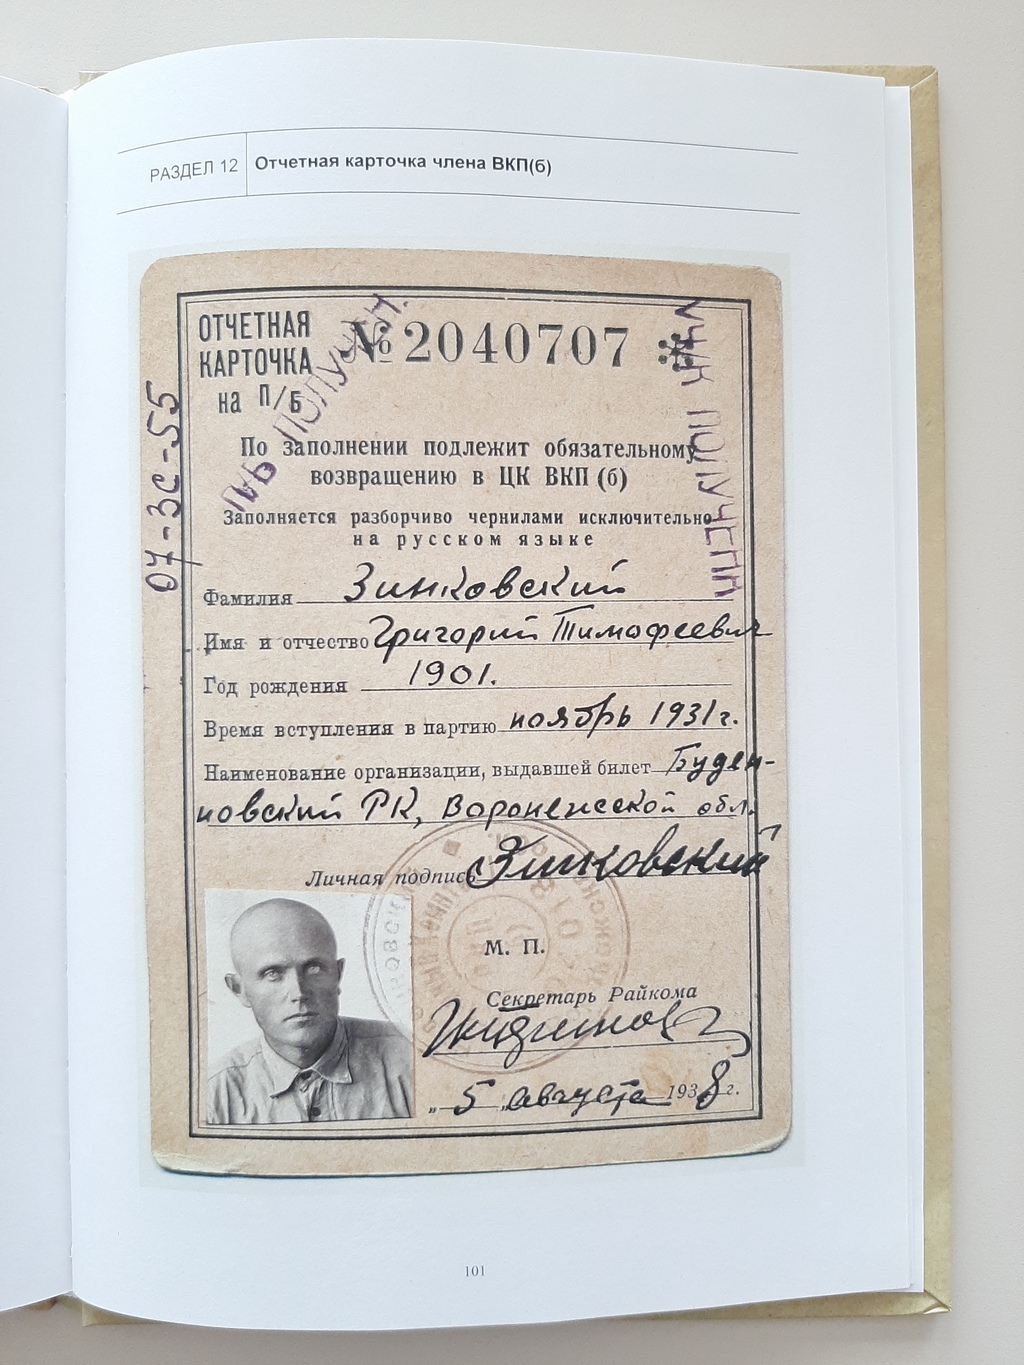 РАЗДЕЛ 12
Отчетная карточка члена ВКП(б)
ОТЧЕТНАЯ
КАРТОЧКА
на П/Б
№ 2040707
П/Б ПОЛУЧЕН.
ПОЛУЧЕПП
07-3С-55
По заполнении подлежит обязательному
возвращению в ЦК ВКП (б)
Заполняется разборчиво чернилами исключительно
на русском языке
Фамилия Зинковский
Имя и отчество Григорий Тимофеевич
Год рождения 1901.
Время вступления в партию ноябрь 1931 г.
Наименование организации, выдавшей билет Буден-
новский РК, Воронежской обл.
Личная подпись Зинковский
М. П.
Секретарь Райкома
„ 5 „ августа 1938 г.
101